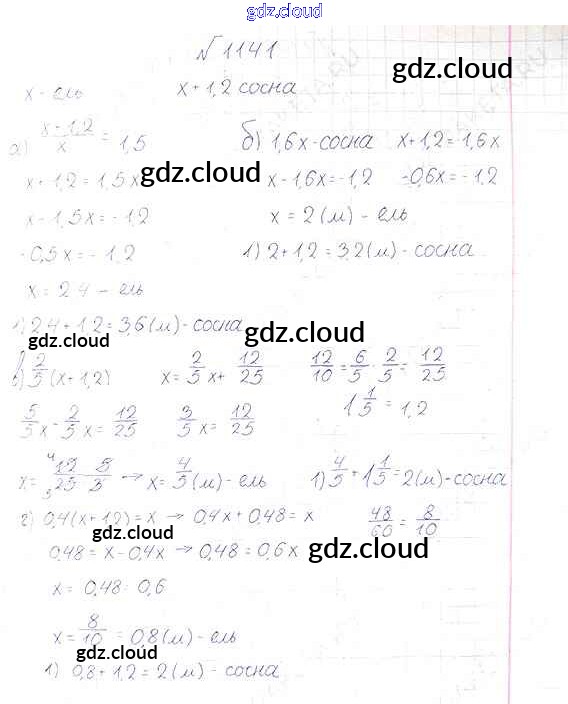 gdz.cloud
№1141
gdz.cloud
x - ель x + 1,2 сосна
а) x+1,2/x = 1,5 б) 1,6x - сосна x+1,2 = 1,6x
gdz.cloud
x + 1,2 = 1,5x x - 1,6x = -1,2 -0,6x = -1,2
x - 1,5x = -1,2 x = 2(м) - ель
-0,5x = -1,2 1) 2+1,2 = 3,2(м) - сосна
gdz.cloud
x = 2,4 - ель
1) 2,4 + 1,2 = 3,6(м) - сосна
gdz.cloud
в) 2/5(x + 1,2) x = 2/5x + 12/25 12/10 = 6/5 · 2/5 = 12/25
gdz.cloud
1 1/5 = 1,2
5/5x - 2/5x = 12/25 3/5x = 12/25
x = 12/25 · 5/3 → x = 4/5(м) - ель 1) 4/5 + 1 1/5 = 2(м) - сосна
gdz.cloud
г) 0,4(x+1,2) = x → 0,4x + 0,48 = x 48/60 = 8/10
gdz.cloud
0,48 = x - 0,4x → 0,48 = 0,6x
x = 0,48 : 0,6
gdz.cloud
x = 8/10 = 0,8(м) - ель
gdz.cloud
1) 0,8 + 1,2 = 2(м) - сосна
gdz.cloud